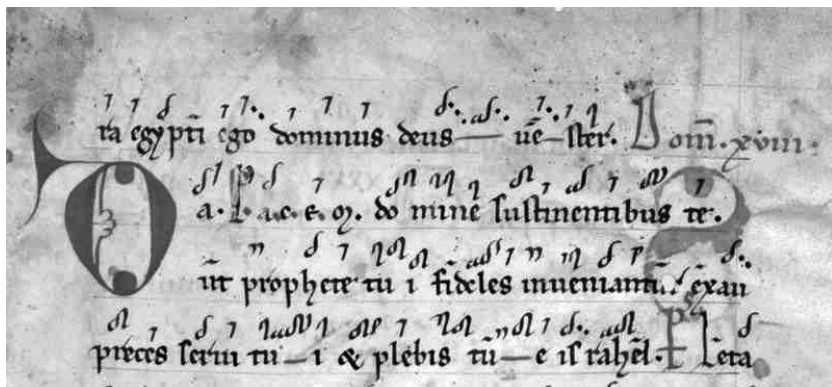 ra egypti ego dominus deus — ve — ster. Dom̄. xviii.
Da. P. a. c. e. m. do mine sustinentibus te.
ut prophete tu i fideles inveniantur exau
preces servi tu — i & plebis tu — e is rahel. P Leta